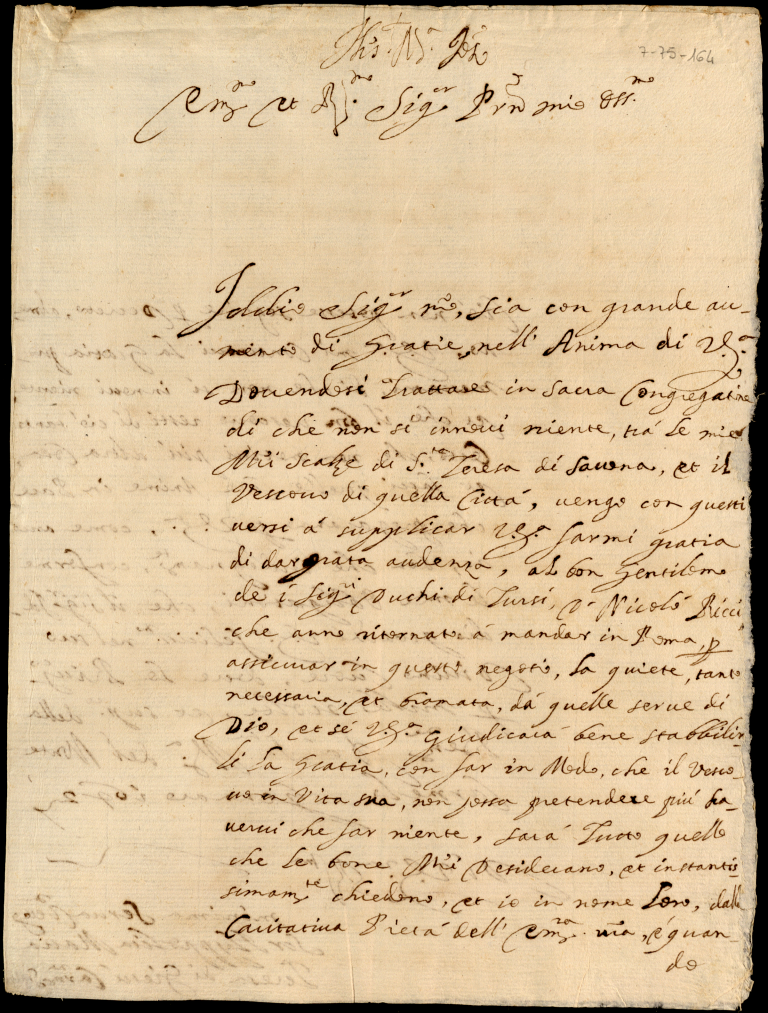 Jhs. Ma. Jos.
7-75-164
Emmo et Rmo. Sigr Prñ mio Ossmo
Iddio Sigr nro, sia con grande au-
mento di Gratie nell' Anima di V.Ema
Dovendosi Trattare in Sacra Congregatne
di che non si innovi niente, trá le mie
Mri Scalze di S.ta Teresa di Savona, et il
Vescovo di quella Cittá, vengo con questi
versi á supplicar V.Ema farmi gratia
di dar grata audenza, al bon Gentilomo
de i Sigri Duchi di Tursi, D. Nicoló Ricci
che anno ritornato á mandar in Roma, p
assicurar in questo negotio, la quiete, tanto
necessaria, et bramata, dá quelle serve di
Dio, et sé V.Ema giudicará bene stabbilir-
li la Gratia, con far in Modo, che il Vesco-
vo in Vita sua, non possa pretendere piú ha-
vervi che far niente, sará Tutto quello
che le bone Mri Desiderano, et instantis-
simamte chiedono, et io in nome Loro, dalla
Caritativa Pietá dell' Emza vra, é quan-
do